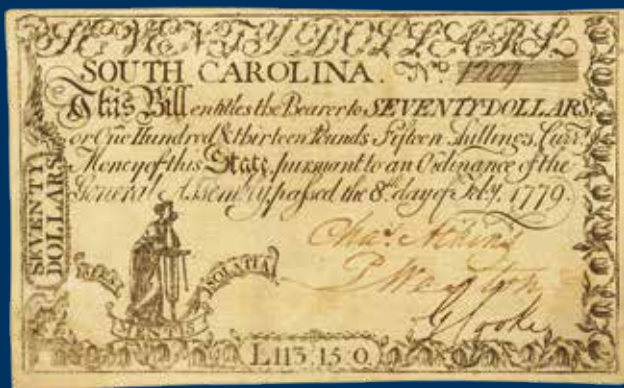 SEVENTY DOLLARS
SOUTH CAROLINA. No. 1709
This Bill entitles the Bearer to SEVENTY DOLLARS,
or One Hundred & thirteen Pounds Fifteen shillings, Curr.t
Money of this State, pursuant to an Ordinance of the
General Assembly, passed the 8th day of Feby. 1779.
SEVENTY
DOLLARS
Chas. Atkins
MENTIS
G Cooke
L113.15.0